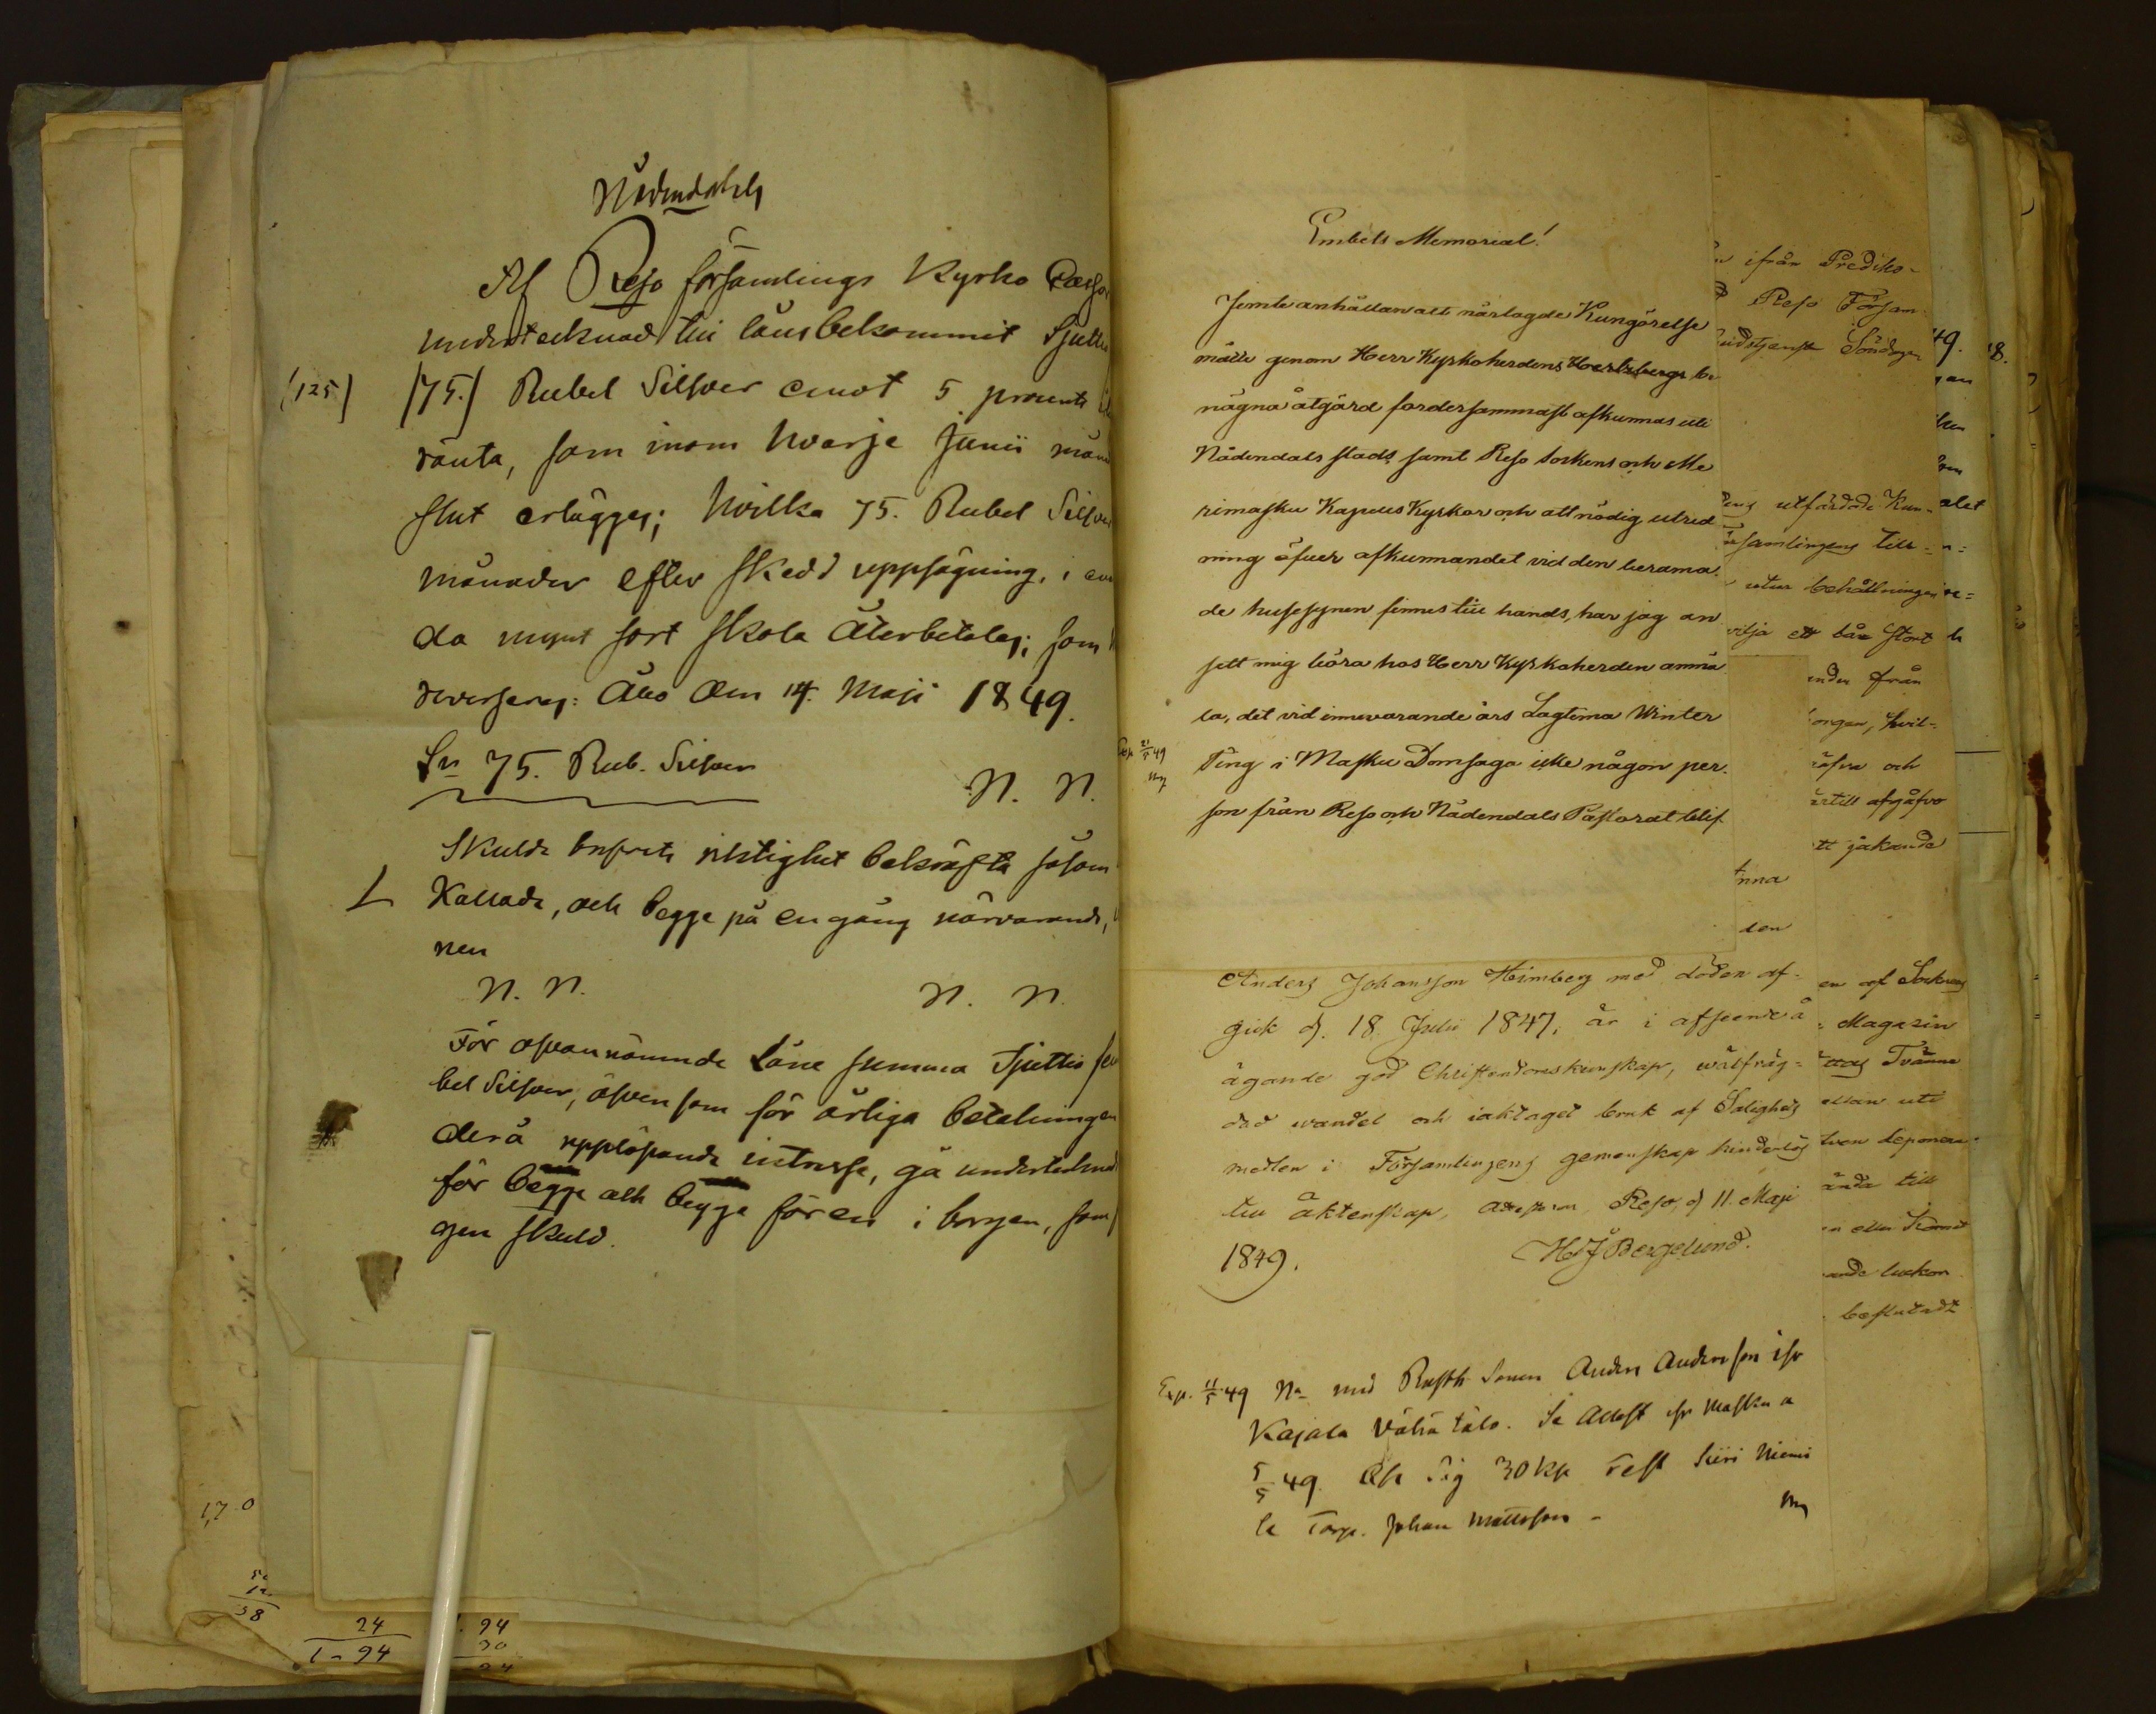 Nådendahls
Af Reso församlings Kyrko Cassa
undertecknad till låns bekommit Sjutti
(125.) (75.) Rubel Silfver emot 5 procents
ränta, som inom hvarje Junii mån
slut erlägges; hvilka 75. Rubel Silfver
månader efter skedd uppsägning, i en
da mynt sort skola återbetalas; som
reverseras: Åbo den 14. Maji 1849.
Sn 75. Rub. Silfver
N. N.
Skulde riktighet bekräfta såsom
Kallade, och begge på en gång närvarande,
nen
N. N. N. N.
För ofvannämnde Låne summa Sjuttio fem
bel Silfver, äfvensom för årliga betalningen
derå upplöpande intresse, gå undertecknad
för begge och begge för en i borgen, som
gen skuld.
1,70
58
24
1-94
94
30
24
Embets Memorial!
Jemte anhållan att närlagde Kungörelse
måtte genom Herr Kyrkoherdens Hertzbergs be
nägna åtgärd fordersammast afkunnas uti
Nådendals stads samt Reso Sockens och Me
rimasku Kapells Kyrkor och att nödig utred
ning öfver afkunnandet vid den berama
de husesynen finnes till hands, har jag an
sett mig böra hos Herr Kyrkoherden anmä
la, det vid innevarande års Lagtima Winter
Exp 21/5 49
Ting i Masku Domsaga icke någon per
son från Reso och Nådendals Pastorat blif
Anders Johansson Heimberg med döden af-
gick d. 18. Julii 1847, är i afseende å
ägande god Christendomskunskap, wälfräg-
dad wandel och iaktaget bruk af Salighets
medlen i Församlingens gemenskap hinderlös
till äktenskap, attesteras, Reso, d 11. Maji
1849. HJ Bergelund.
Exp. 11/5 49 Na med Rusth Sonen Anders Andersson ifr
Kajala Vähä talo. Se Attest ifr Masku a
5/5 49. Afs. sig 30 kp rest Siiri Niemi
le Torp. Johan Mattsson -
ifrån Prediko-
Reso Försam
Gudstjenst Söndagen
49.
18.
utfärdade Kun-
samlingens till-
utur behållningen
vilja ett lån stort
alet
nden från
orgen, hvil-
äfva och
ärtill afgåfvo
tt jakande
nna
den
en af Sockens
Magazin
ttas Tvänne
ellan uti
tven deponera-
ända till
n eller
ande
beslutadt